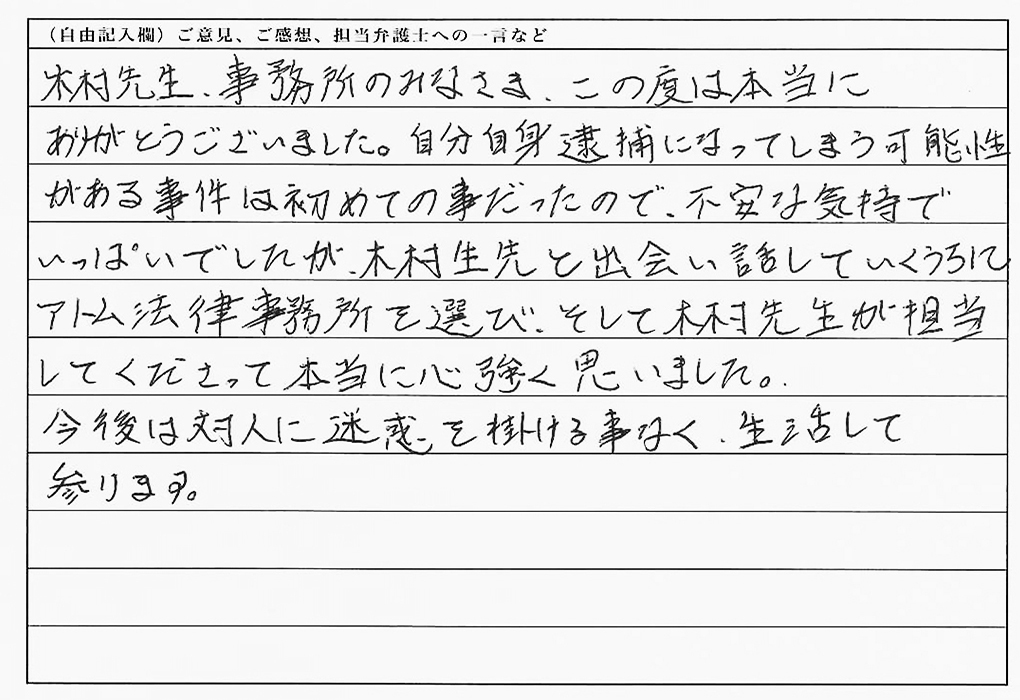 (自由記入欄)ご意見、ご感想、担当弁護士への一言など
木村先生、事務所のみなさま、この度は本当に
ありがとうございました。自分自身逮捕になってしまう可能性
がある事件は初めての事だったので、不安な気持で
いっぱいでしたが、木村生先と出会い話していくうちに
アトム法律事務所を選び、そして木村先生が担当
してくださって本当に心強く思いました。
今後は対人に迷惑を掛ける事なく、生活して
参ります。